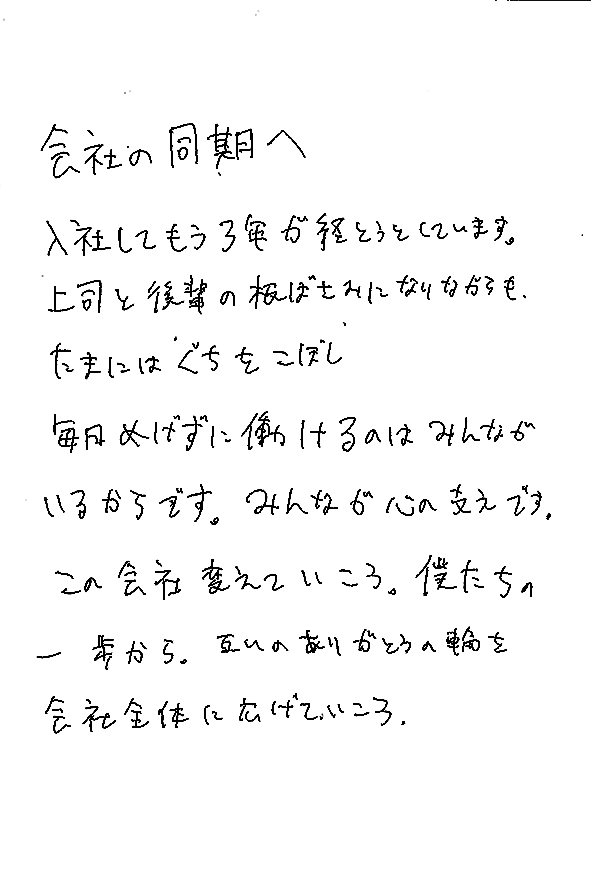 会社の同期へ
入社してもう3年が経とうとしています。
上司と後輩の板ばさみになりながらも、
たまにはぐちをこぼし
毎日めげずに働けるのはみんなが
いるからです。みんなが心の支えです。
この会社変えていこう。僕たちの
一歩から。互いのありがとうの輪を
会社全体に広げていこう。